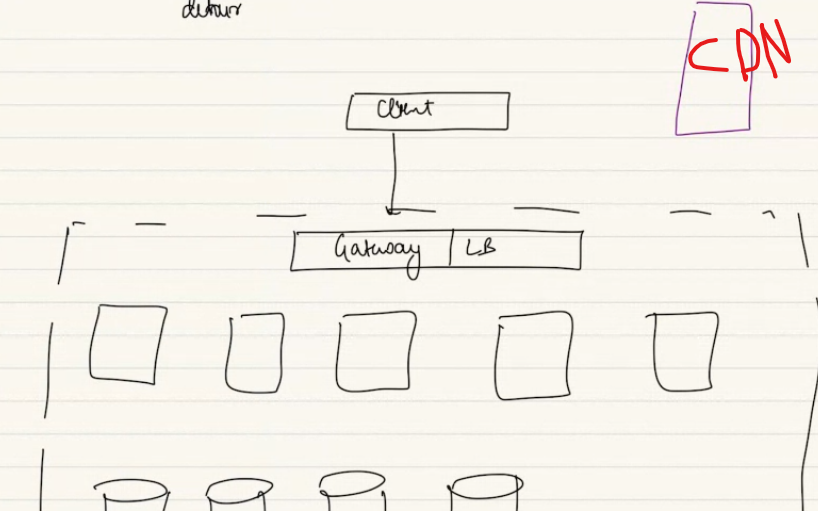 detour
CDN
Client
Gateway | LB